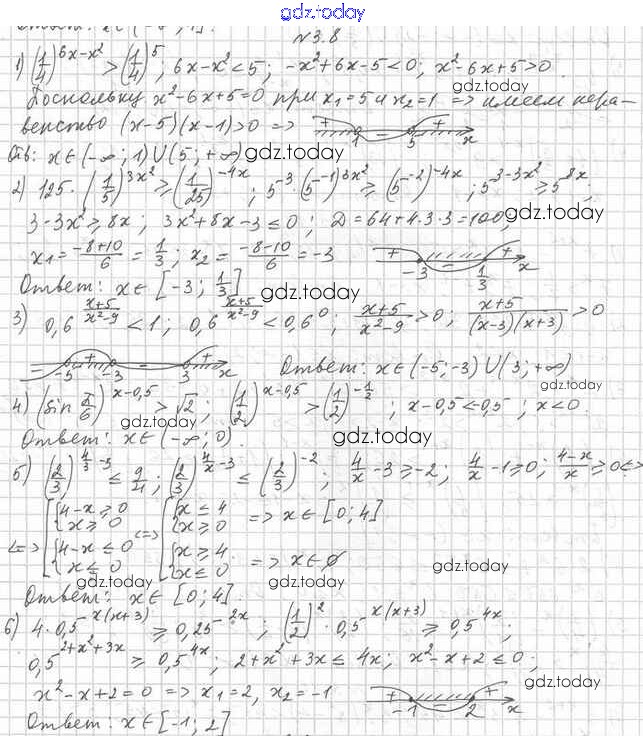 gdz.today
Ответ: x∈(-
N3.8
1) (1/4)^(6x-x²) > (1/4)^5; 6x-x²<5; -x²+6x-5<0; x²-6x+5>0.
gdz.today
Поскольку x²-6x+5=0 при x₁=5 и x₂=1 => имеем нера-
венство (x-5)(x-1)>0 => + 1 - 5 + x
Отв: x∈(-∞; 1)∪(5; +∞) gdz.today
2) 125·(1/5)^(3x²) ≥ (1/25)^(-4x); 5^(-3)·(5^(-1))^(3x²) ≥ (5^(-2))^(-4x); 5^(3-3x²) ≥ 5^(8x);
3-3x²≥8x; 3x²+8x-3≤0; D=64+4·3·3=100; gdz.today
x₁=(-8+10)/6=1/3; x₂=(-8-10)/6=-3 + -3 - 1/3 + x
Ответ: x∈[-3; 1/3] gdz.today
3) 0,6^((x+5)/(x²-9)) <1; 0,6^((x+5)/(x²-9)) <0,6^0; (x+5)/(x²-9)>0; (x+5)/((x-3)(x+3))>0
- -5 + -3 - 3 + x Ответ: x∈(-5;-3)∪(3;+∞)
gdz.today
4) (sin π/6)^(x-0,5) > √2; (1/2)^(x-0,5) > (1/2)^(-1/2); x-0,5<-0,5; x<0.
Ответ: x∈(-∞; 0). gdz.today
5) (2/3)^(4/3-3) ≤ 9/4; (2/3)^(4/x-3) ≤ (2/3)^(-2); 4/x-3≥-2; 4/x-1≥0; (4-x)/x≥0<=>
<=> [ { 4-x≥0 <=> [ { x≤4 => x∈[0;4]
x≥0 x≥0
{ 4-x≤0 { x≥4 => x∈∅
x≤0 x≤0
gdz.today gdz.today gdz.today
Ответ: x∈[0;4].
6) 4·0,5^(x(x+3)) ≥ 0,25^(2x); (1/2)^2·0,5^(x(x+3)) ≥ 0,5^(4x);
gdz.today
0,5^(2+x²+3x) ≥ 0,5^(4x); 2+x²+3x≤4x; x²-x+2≤0;
gdz.today
x²-x+2=0 => x₁=2, x₂=-1 + -1 - 2 + x
Ответ: x∈[-1; 2]